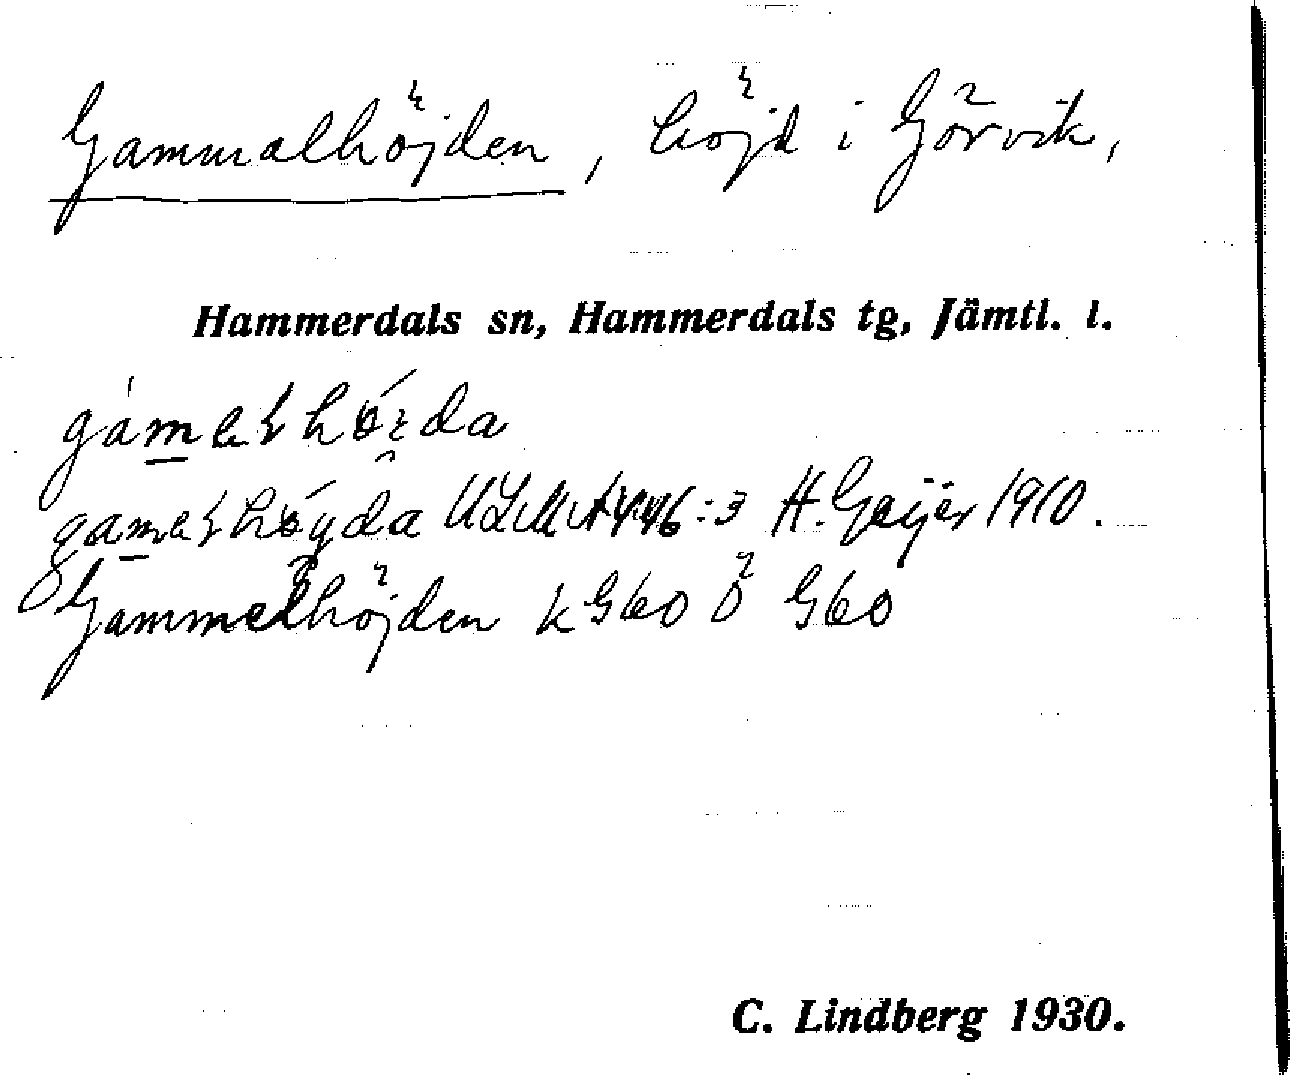 Gammalhöjden, höjd i Görvik,
Hammerdals sn, Hammerdals tg, Jämtl. l.
ULMA 446:3 H. Geijer 1910.
Gammelhöjden k G60 ö G60
C. Lindberg 1930.